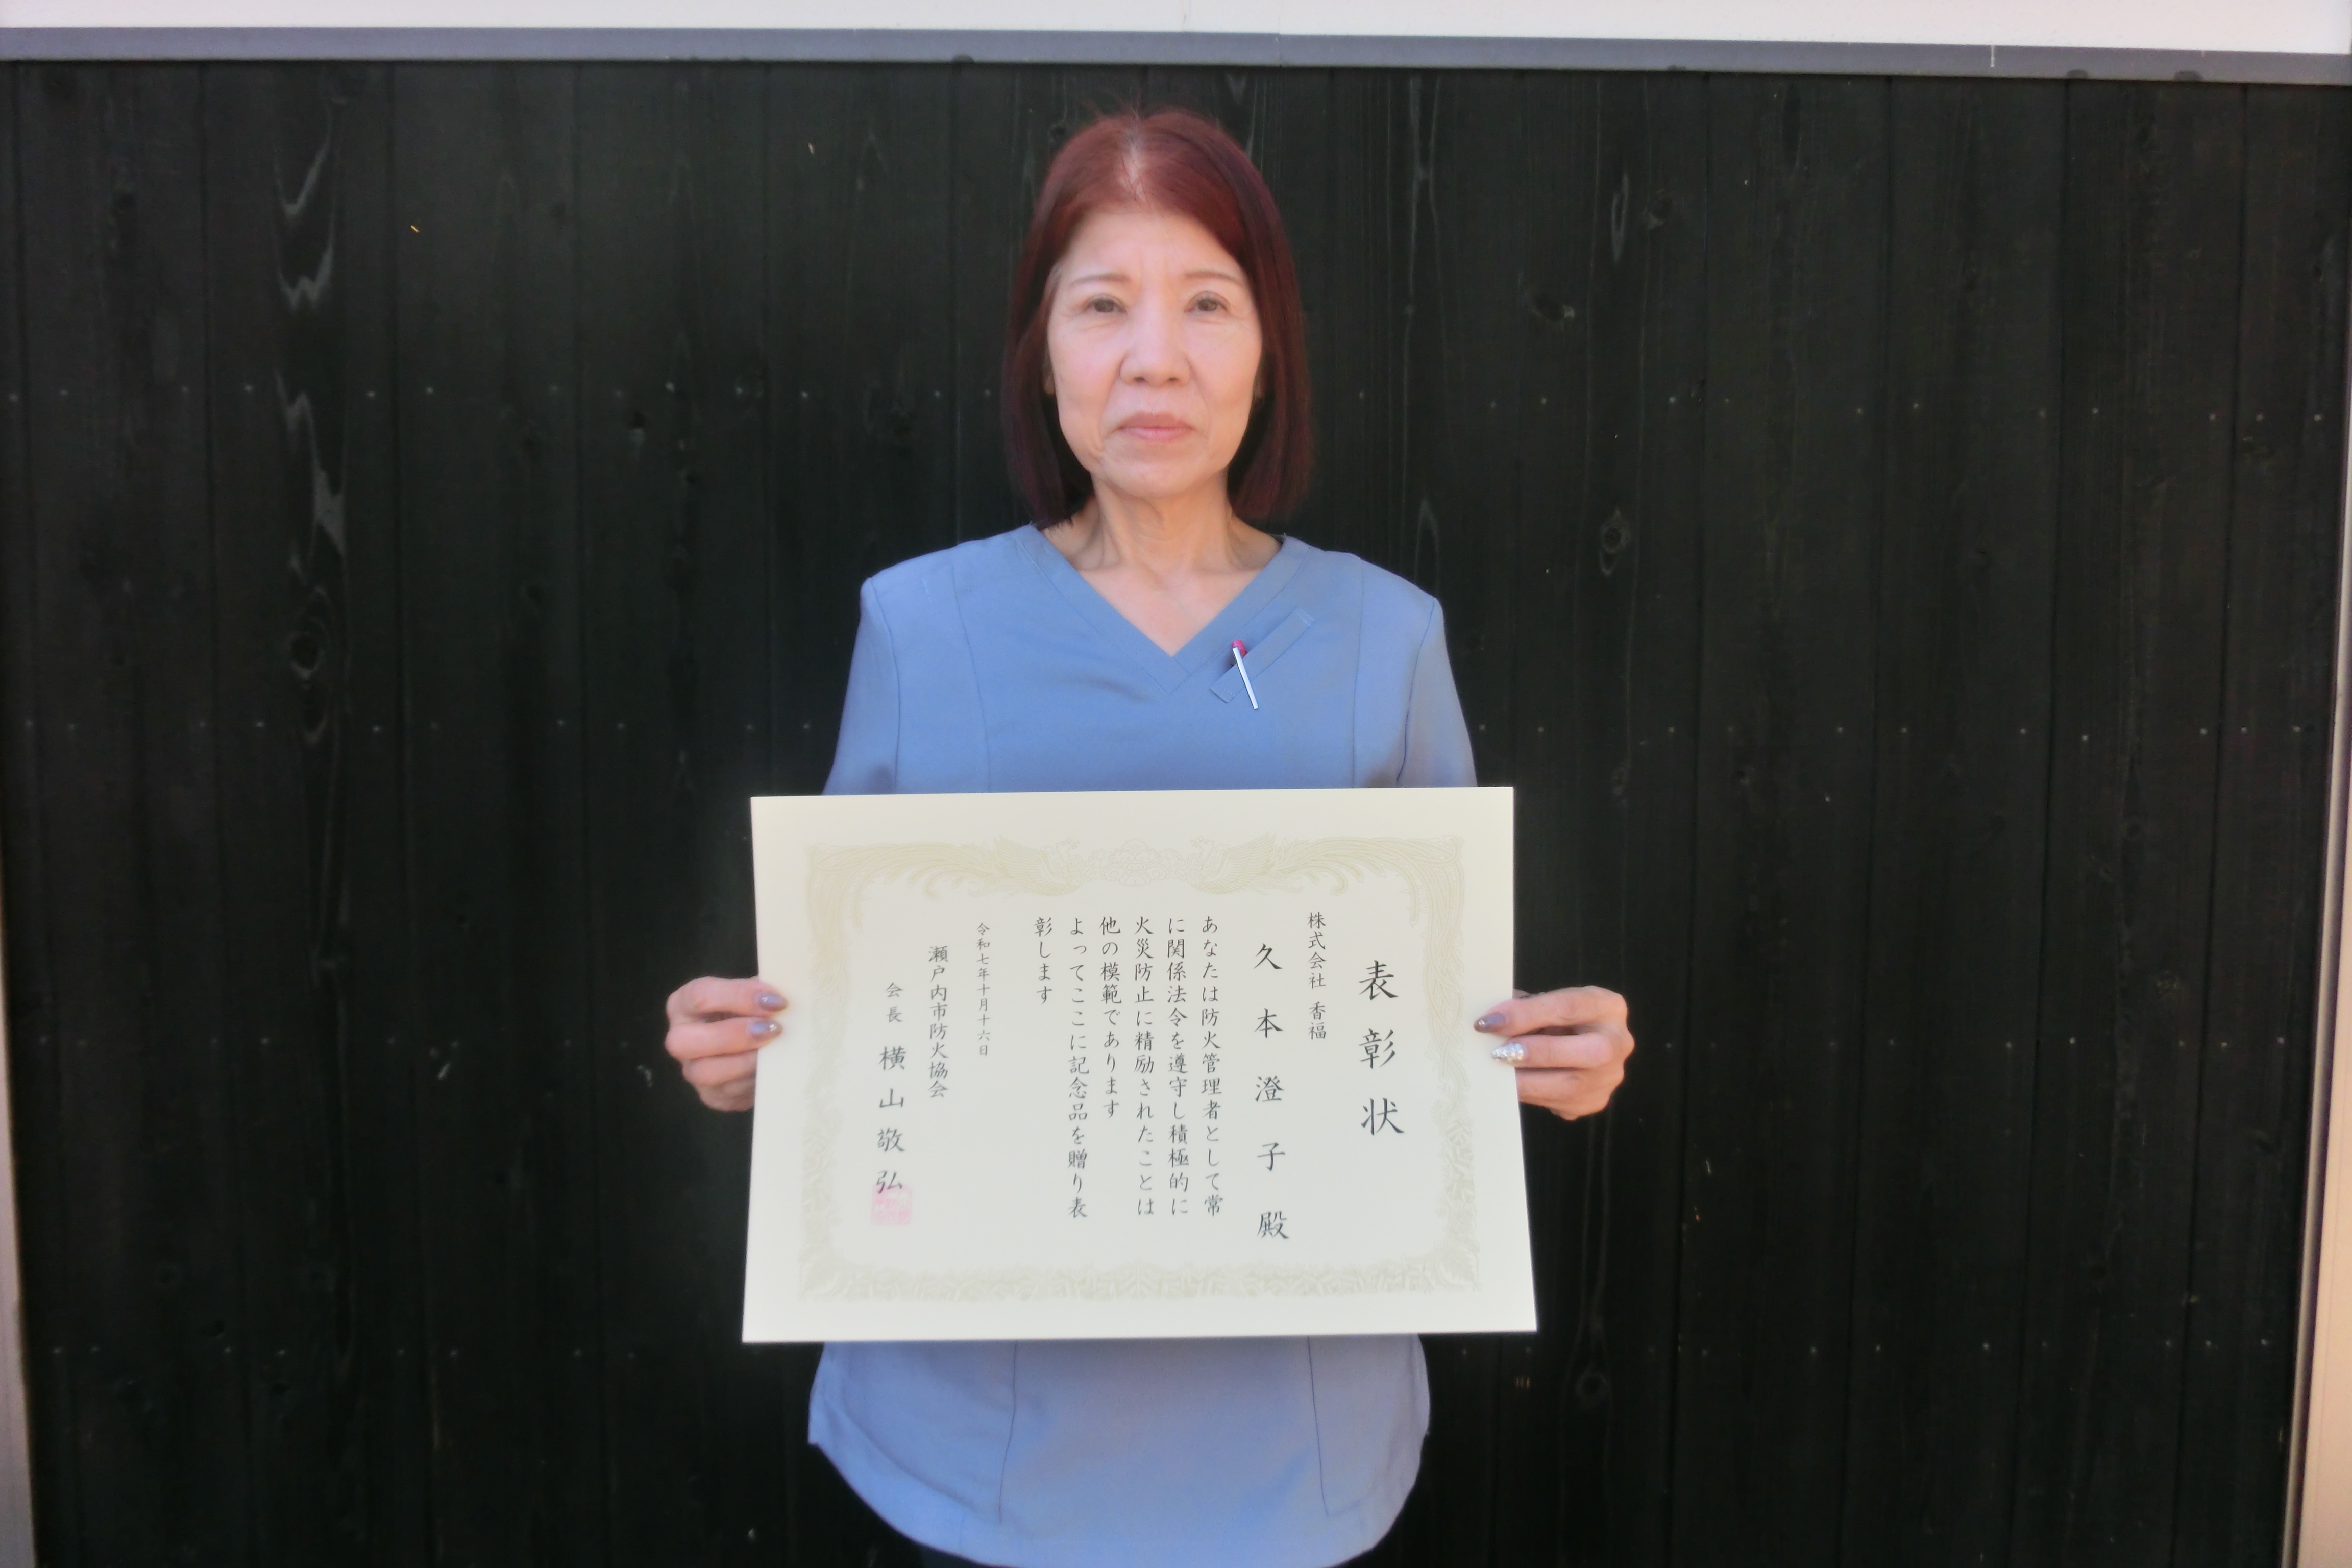 表彰状
株式会社 香福
久本澄子殿
あなたは防火管理者として常
に関係法令を遵守し積極的に
火災防止に精励されたことは
他の模範であります
よってここに記念品を贈り表
彰します
令和七年十月十六日
瀬戸内市防火協会
会長 横山敬弘